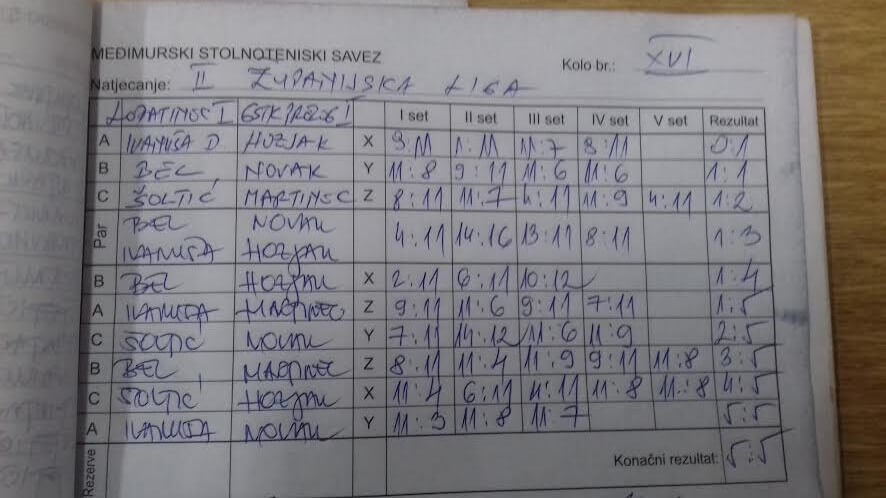 MEĐIMURSKI STOLNOTENISKI SAVEZ
Kolo br.: XVI
Natjecanje: II ŽUPANIJSKA LIGA
I I I set II set III set IV set V set Rezultat
A IVANUŠA D. HOZJAK X 9:11 1:11 11:7 8:11 0:1
B BEL NOVAK Y 11:8 9:11 11:6 11:6 1:1
C ŠOLTIĆ MARTINEC Z 8:11 11:7 4:11 11:9 4:11 1:2
Par BEL NOVAK 4:11 14:16 13:11 8:11 1:3
IVANUŠA HOZJAK
B BEL HOZJAK X 2:11 6:11 10:12 1:4
A IVANUŠA MARTINEC Z 9:11 11:6 9:11 7:11 1:5
C ŠOLTIĆ NOVAK Y 7:11 14:12 11:6 11:9 2:5
B BEL MARTINEC Z 8:11 11:4 11:9 9:11 11:8 3:5
C ŠOLTIĆ HOZJAK X 11:4 6:11 4:11 11:8 11:8 4:5
A IVANUŠA NOVAK Y 11:3 11:8 11:7 5:5
Rezerve Konačni rezultat: 5:5